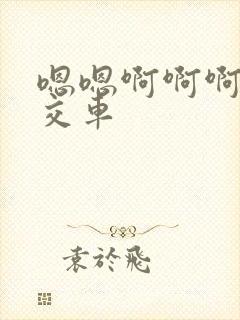 嗯嗯啊啊啊
交车
袁於飛